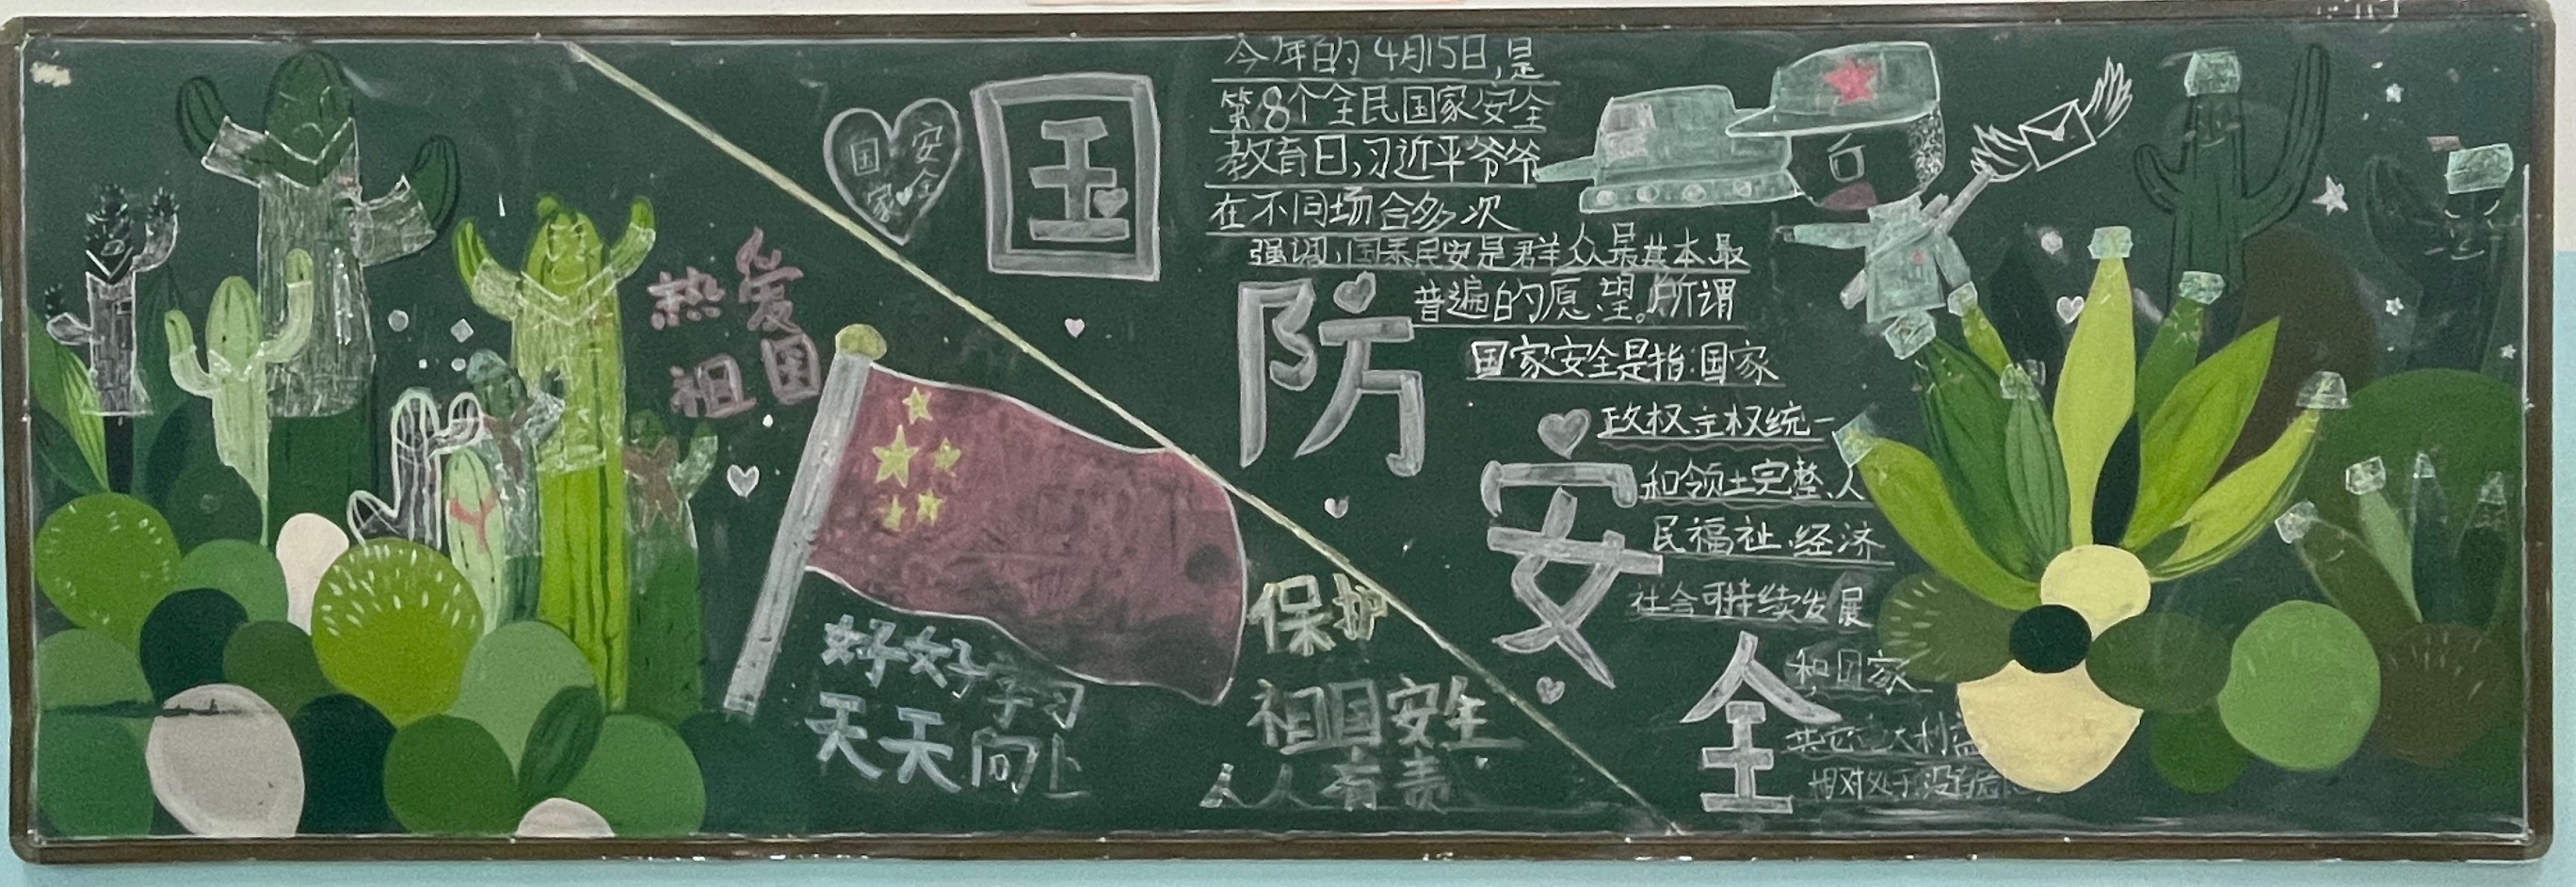 国 安
家 全
国
防
安
全
今年的4月15日,是
第8个全民国家安全
教育日,习近平爷爷
在不同场合多次
强调,国泰民安是群众最基本最
普遍的愿望。所谓
国家安全是指:国家
政权主权统一
和领土完整、人
民福祉、经济
社会可持续发展
和国家
其它重大利益
相对处于没有危
热爱
祖国
好好学习
天天向上
保护
祖国安全
人人有责